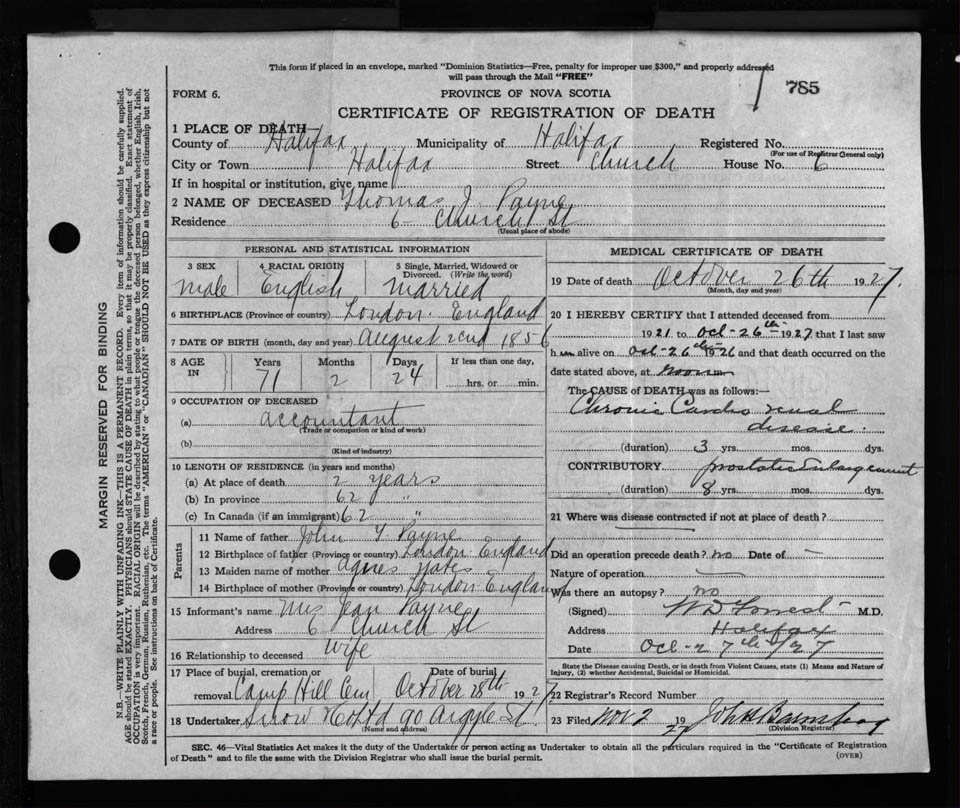 This form if placed in an envelope, marked "Dominion Statistics—Free, penalty for improper use $300," and properly addressed
will pass through the Mail "FREE"
785
FORM 6.
PROVINCE OF NOVA SCOTIA
CERTIFICATE OF REGISTRATION OF DEATH
1 PLACE OF DEATH
County of Halifax Municipality of Halifax Registered No.
(For use of Registrar General only)
City or Town Halifax Street Church House No. 6
If in hospital or institution, give name
2 NAME OF DECEASED Thomas J. Payne
Residence 6 Church St
(Usual place of abode)
PERSONAL AND STATISTICAL INFORMATION
3 SEX 4 RACIAL ORIGIN 5 Single, Married, Widowed or
Divorced. (Write the word)
Male English Married
6 BIRTHPLACE (Province or country) London England
7 DATE OF BIRTH (month, day and year) August 22nd 1856
8 AGE IN Years Months Days If less than one day,
71 2 24 hrs. or min.
9 OCCUPATION OF DECEASED
(a) accountant
(Trade or occupation or kind of work)
(b)
(Kind of industry)
10 LENGTH OF RESIDENCE (in years and months)
(a) At place of death 2 years
(b) In province 62 "
(c) In Canada (if an immigrant) 62 "
Parents
11 Name of father John Y. Payne
12 Birthplace of father (Province or country) London England
13 Maiden name of mother Agnes Yates
14 Birthplace of mother (Province or country) London England
15 Informant's name Mrs Jean Payne
Address 6 Church St
16 Relationship to deceased Wife
17 Place of burial, cremation or Date of burial
removal Camp Hill Cem October 28th 1927
18 Undertaker Snow & Co Ltd 90 Argyle St.
(Name and address)
MEDICAL CERTIFICATE OF DEATH
19 Date of death October 26th 1927.
(Month, day and year)
20 I HEREBY CERTIFY that I attended deceased from
1921 to Oct-26th 1927 that I last saw
him alive on Oct-26th 1926 and that death occurred on the
date stated above, at noon m
The CAUSE of DEATH was as follows:—
Chronic Cardio renal
disease.
(duration) 3 yrs. mos. dys.
CONTRIBUTORY prostatic Enlargement
(duration) 8 yrs. mos. dys.
21 Where was disease contracted if not at place of death?
Did an operation precede death? no Date of -
Nature of operation
Was there an autopsy? no
(Signed) W D Forrest M.D.
Address Halifax
Date Oct-27th/27
State the Disease causing Death, or in death from Violent Causes, state (1) Means and Nature of
Injury, (2) whether Accidental, Suicidal or Homicidal.
22 Registrar's Record Number
23 Filed Nov 2 1927
(Division Registrar)
SEC. 46—Vital Statistics Act makes it the duty of the Undertaker or person acting as Undertaker to obtain all the particulars required in the "Certificate of Registration
of Death" and to file the same with the Division Registrar who shall issue the burial permit.
(OVER)
MARGIN RESERVED FOR BINDING
N.B.—WRITE PLAINLY WITH UNFADING INK—THIS IS A PERMANENT RECORD. Every item of information should be carefully supplied.
AGE should be stated EXACTLY. PHYSICIANS should STATE CAUSE OF DEATH in plain terms, so that it may be properly classified. Exact statement of
OCCUPATION is very important. RACIAL ORIGIN will be described by stating to what people or tongue the deceased person belonged, whether English, Irish,
Scotch, French, German, Russian, Ruthenian, etc. The terms "AMERICAN" or "CANADIAN" SHOULD NOT BE USED as they express citizenship but not
a race or people. See instructions on back of Certificate.